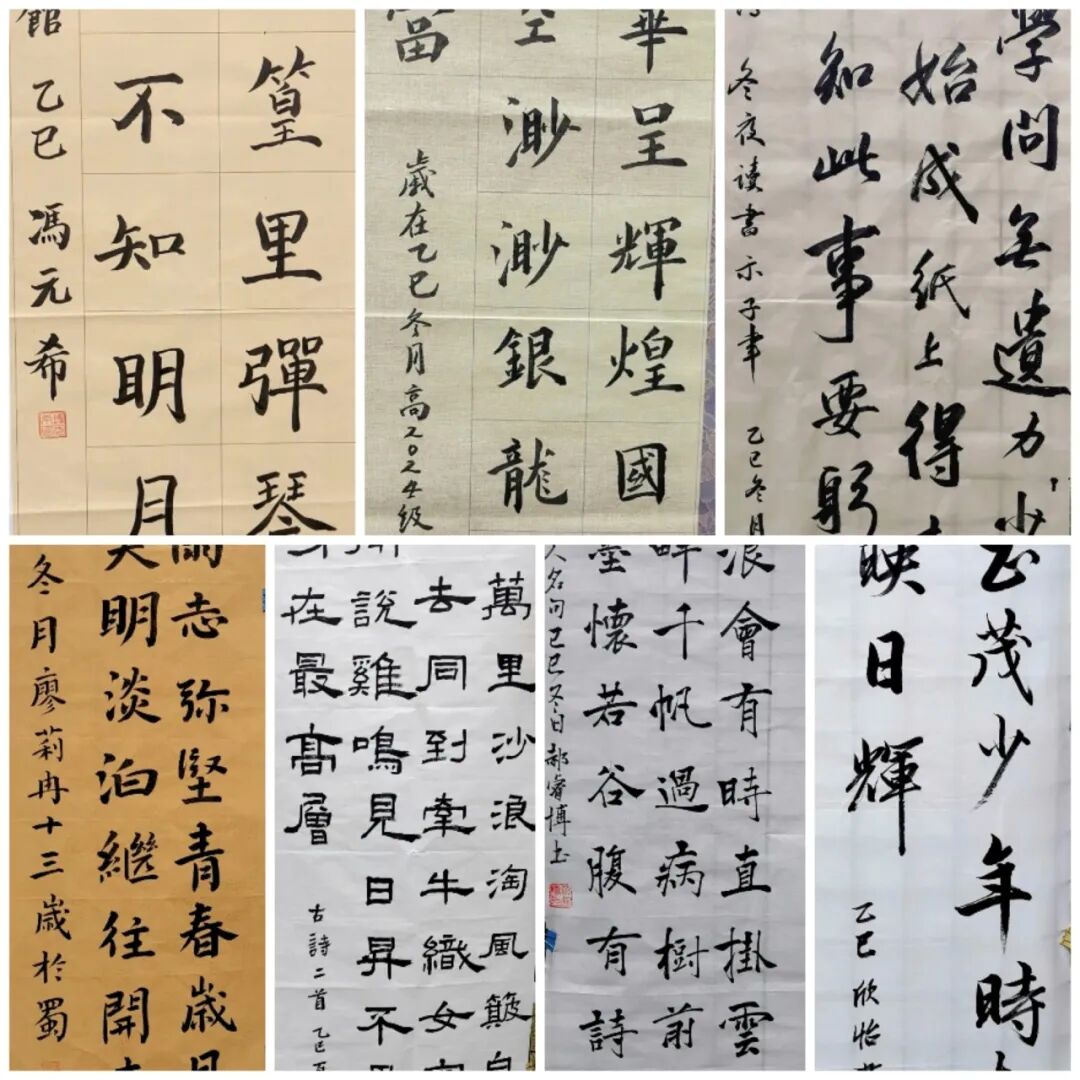 篁里彈琴
不知明月
館 乙巳 馮元希
華呈輝煌國
空渺渺銀龍
富
歲在乙巳冬月高二〇二四级
學问無遺力少
始成紙上得
知此事要躬
冬夜读書示子聿 乙巳冬月
志弥堅青春歲月
明淡泊繼往開
冬月廖莉冉十三歲於蜀
萬里沙浪淘風簸自
去同到牽牛織女家
說雞鳴見日昇不
在最高層
古詩二首 乙巳
浪會有時直掛雲
畔千帆過病樹前
懷若谷腹有詩
人名句乙巳冬日郝睿博书
正茂少年時
映日輝
乙巳欣怡